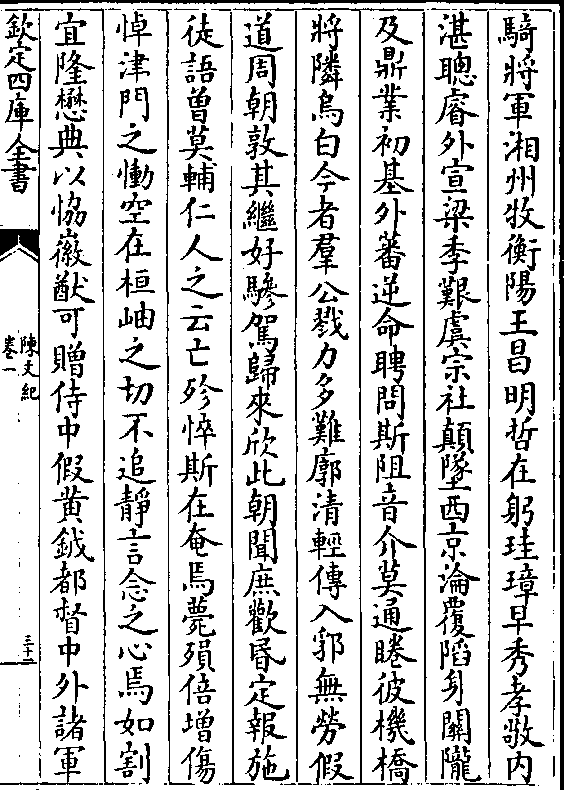 騎將軍湘州牧衡陽王昌明哲在躬珪璋早秀孝敬内
湛聰睿外宣梁季艱虞宗社顛墜西京淪覆陷身關隴
及鼎業初基外蕃逆命聘問斯阻音介莫通睠彼機橋
將隣烏白今者羣公戮力多難廓清輕傳入郛無勞假
道周朝敦其繼好驂駕歸來欣此朝聞庶歡昏定報施
徒語曽莫輔仁人之云亡殄悴斯在奄焉薨殞倍增傷
悼津門之慟空在桓岫之切不追靜言念之心焉如割
宜隆懋典以恊徽猷可贈侍中假黄鉞都督中外諸軍
欽定四庫全書
陳文紀
卷一
三十二